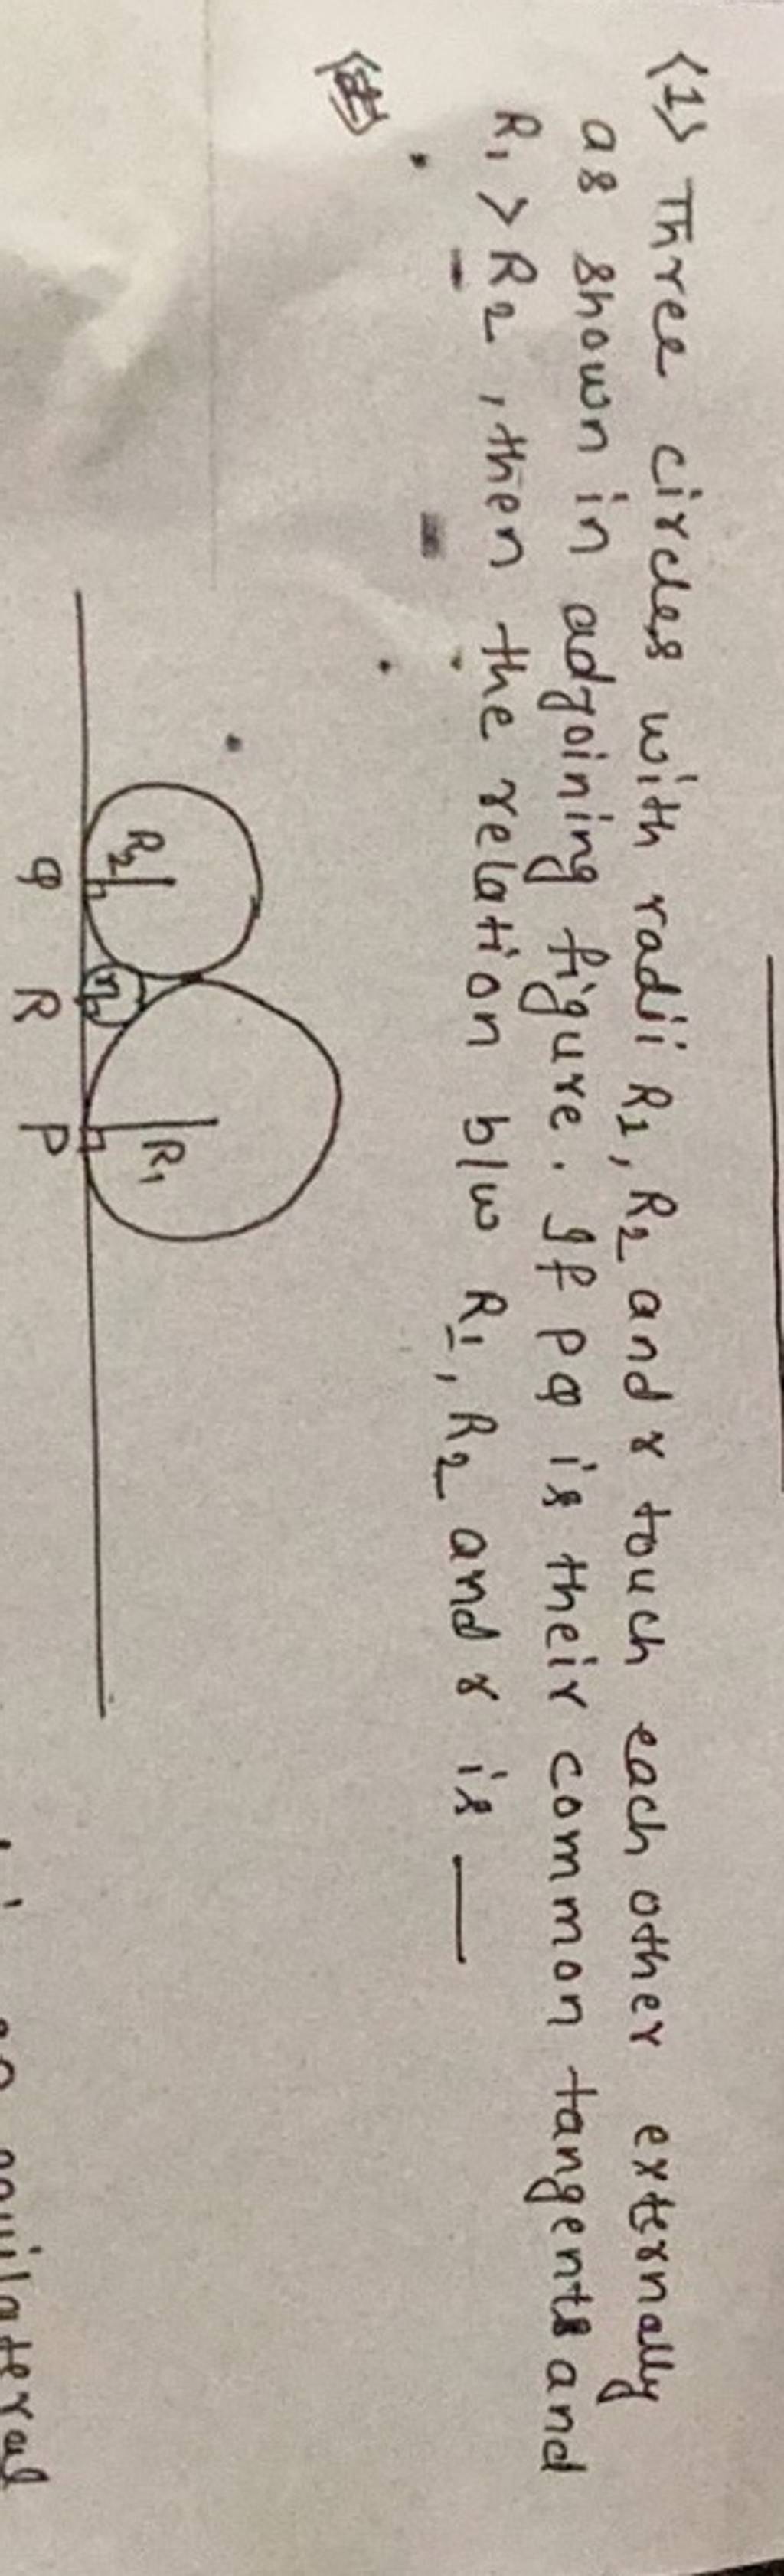 (1) Three circles with radii R1, R2 and r touch each other externally
as shown in adjoining figure. If PQ is their common tangents and
R1 > R2, then the relation b/w R1, R2 and r is —
R2
r
R1
Q R P
equilateral